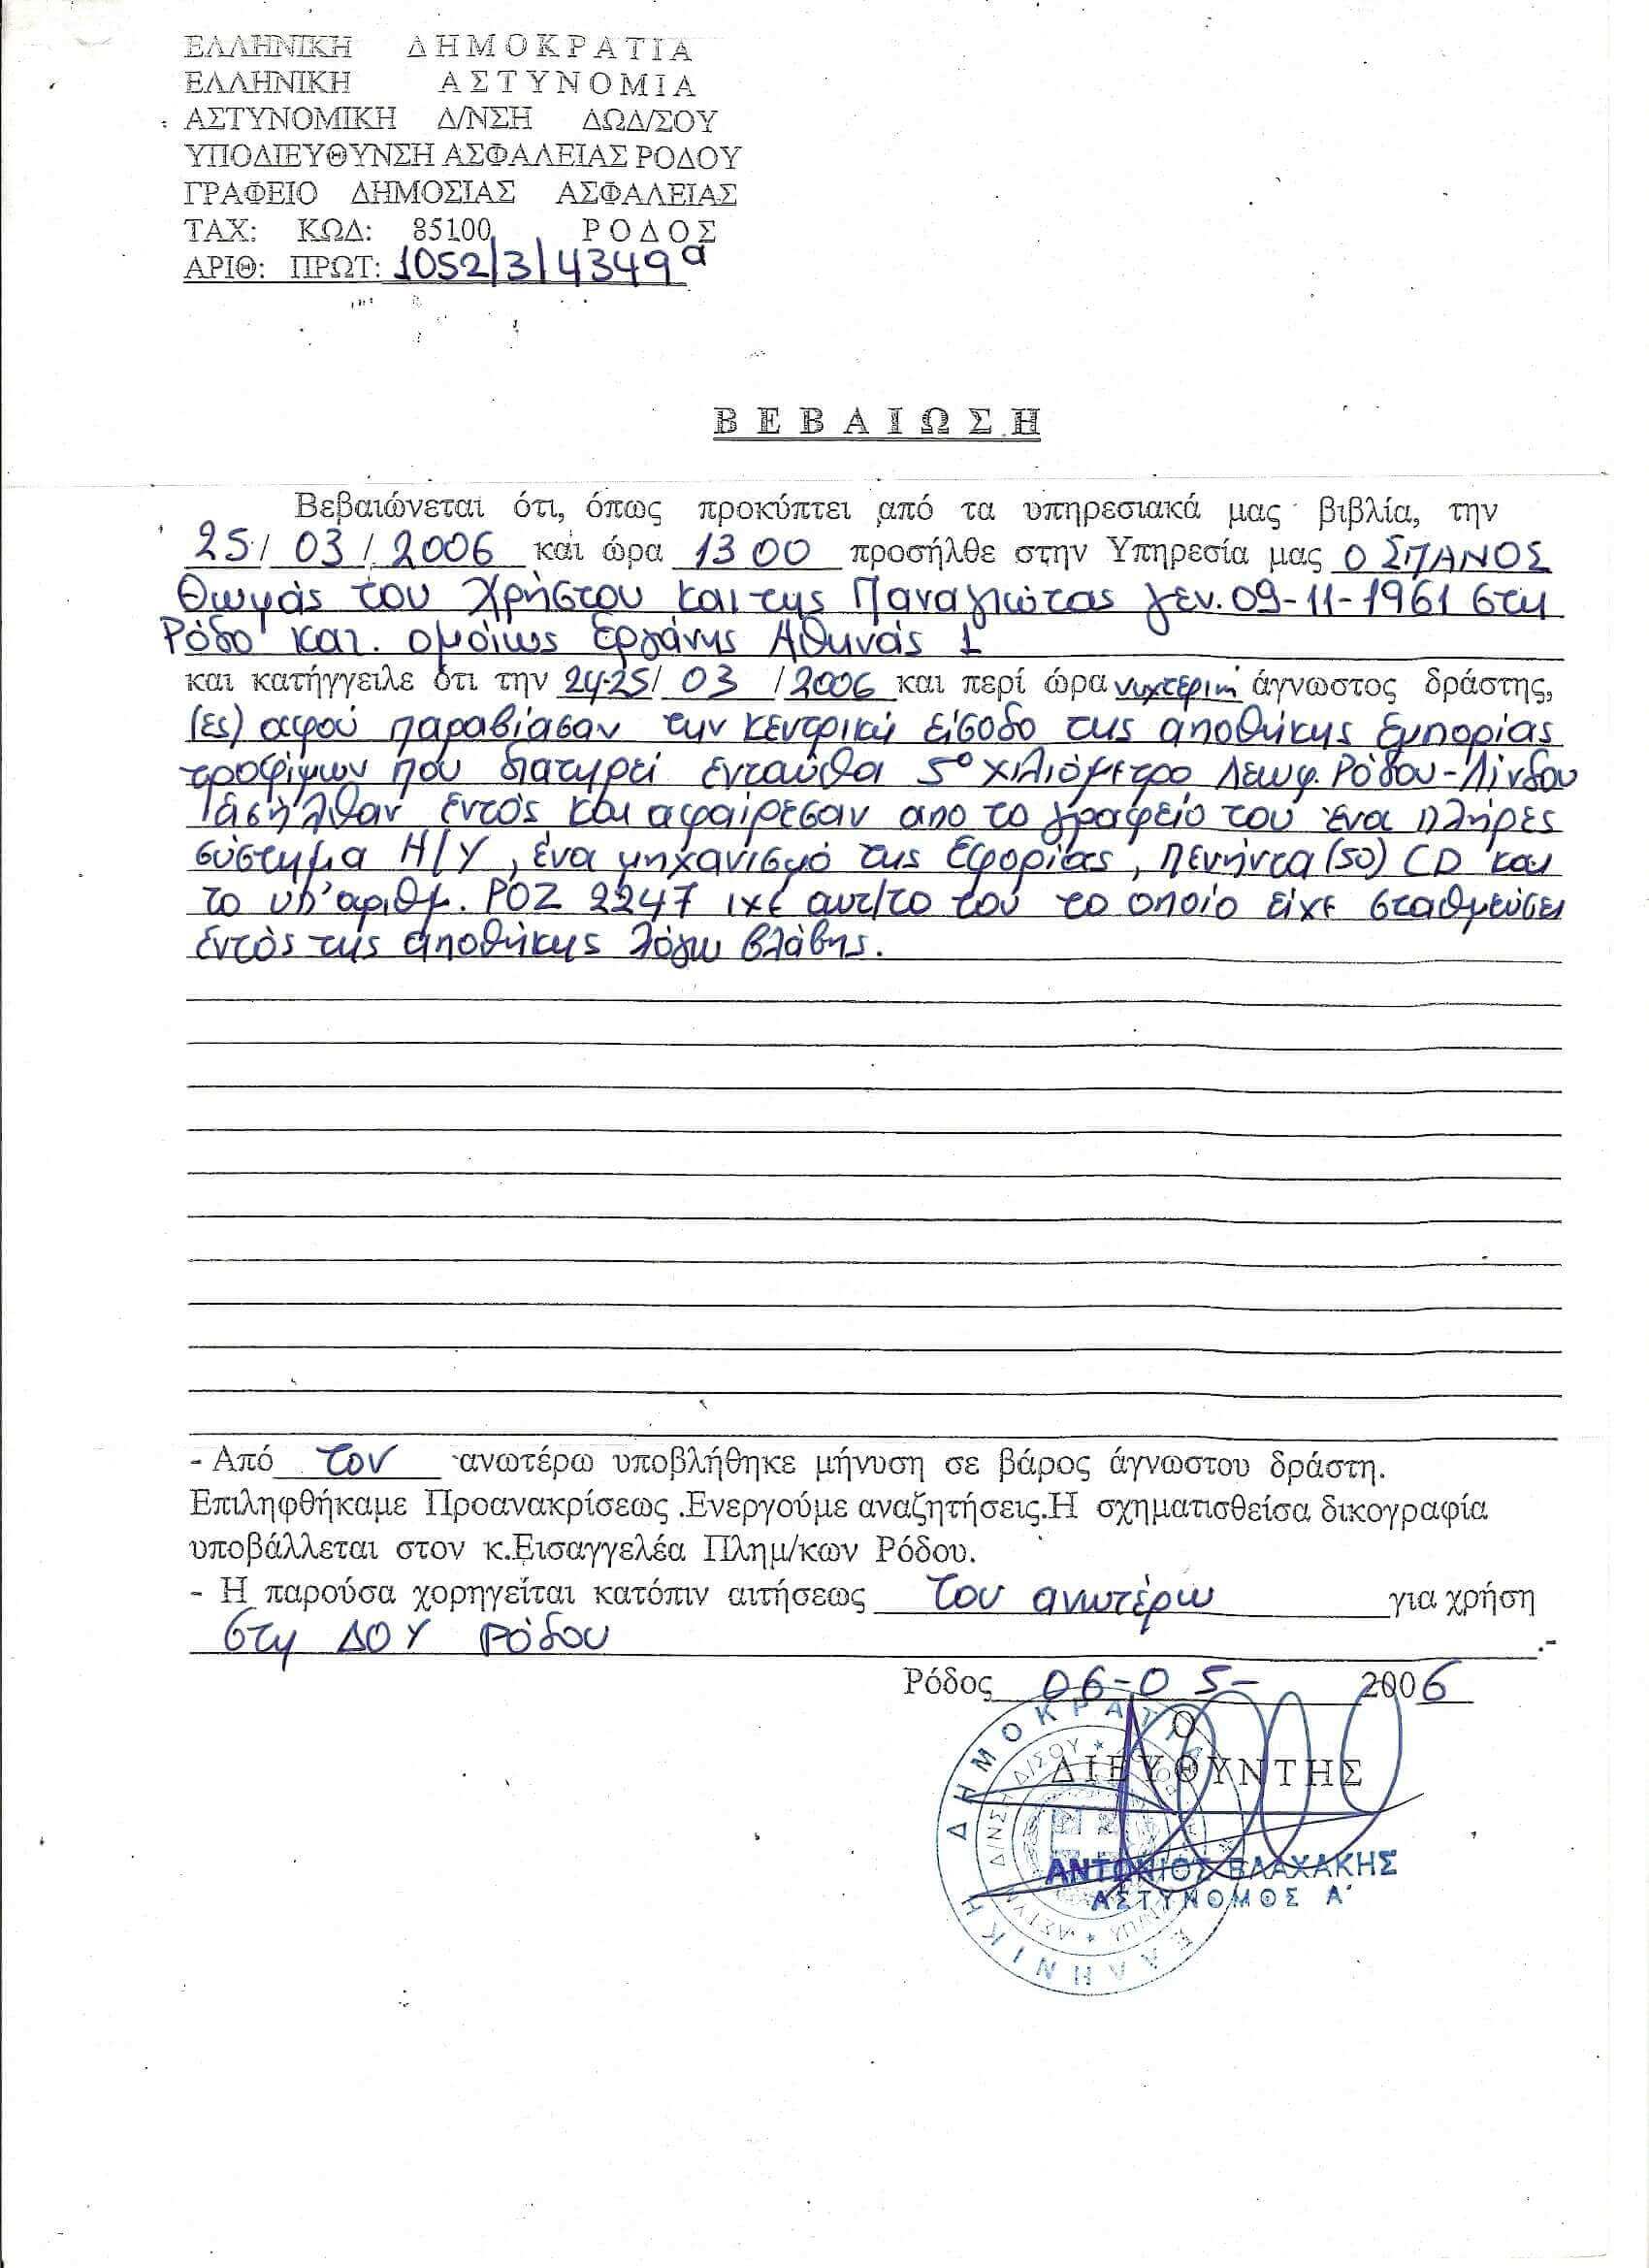 ΕΛΛΗΝΙΚΗ ΔΗΜΟΚΡΑΤΙΑ
ΕΛΛΗΝΙΚΗ ΑΣΤΥΝΟΜΙΑ
ΑΣΤΥΝΟΜΙΚΗ Δ/ΝΣΗ ΔΩΔ/ΣΟΥ
ΥΠΟΔΙΕΥΘΥΝΣΗ ΑΣΦΑΛΕΙΑΣ ΡΟΔΟΥ
ΓΡΑΦΕΙΟ ΔΗΜΟΣΙΑΣ ΑΣΦΑΛΕΙΑΣ
ΤΑΧ: ΚΩΔ: 85100 ΡΟΔΟΣ
ΑΡΙΘ: ΠΡΩΤ: 1052/3/4349α
ΒΕΒΑΙΩΣΗ
Βεβαιώνεται ότι, όπως προκύπτει από τα υπηρεσιακά μας βιβλία, την
25/ 03/ 2006 και ώρα 1300 προσήλθε στην Υπηρεσία μας Ο ΣΠΑΝΟΣ
Θωμάς του Χρήστου και της Παναγιώτας γεν. 09-11-1961 στη
Ρόδο κατ. ομοίως Εργάνης Αθηνάς 1
και κατήγγειλε ότι την 24-25/ 03 /2006 και περί ώρα νυχτερινή άγνωστος δράστης,
(ες) αφού παραβίασαν την κεντρική είσοδο της αποθήκης εμπορίας
τροφίμων που διατηρεί ενταύθα 5ο χιλιόμετρο Λεωφ. Ρόδου-Λίνδου
εισήλθαν εντός και αφαίρεσαν απο το γραφείο του ένα πλήρες
σύστημα Η/Υ, ένα μηχανισμό της Εφορίας, πενήντα (50) CD και
το υπ' αριθμ. ΡΟΖ 2247 ιχε αυτ/το του το οποίο είχε σταθμεύσει
εντός της αποθήκης λόγω βλάβης.
- Από τον ανωτέρω υποβλήθηκε μήνυση σε βάρος άγνωστου δράστη.
Επιληφθήκαμε Προανακρίσεως .Ενεργούμε αναζητήσεις.Η σχηματισθείσα δικογραφία
υποβάλλεται στον κ.Εισαγγελέα Πλημ/κων Ρόδου.
- Η παρούσα χορηγείται κατόπιν αιτήσεως του ανωτέρω για χρήση
στη ΔΟΥ Ρόδου .-
Ρόδος 06-05- 2006
Ο
ΔΙΕΥΘΥΝΤΗΣ
ΑΝΤΩΝΙΟΣ ΒΛΑΧΑΚΗΣ
ΑΣΤΥΝΟΜΟΣ Α΄
ΕΛΛΗΝΙΚΗ ΔΗΜΟΚΡΑΤΙΑ